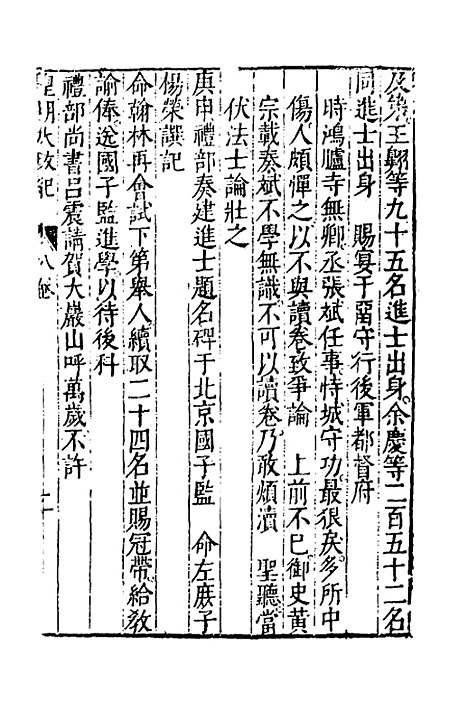 及第王翺等九十五名進士出身余慶等二百五十二名
同進士出身　賜宴于中軍守行後軍都督府
時鴻臚寺無卿丞張斌任事恃城守功最很矣多所中
傷人頗憚之以不與讀卷致爭論　上前不已御史黃
宗載奏斌不學無識不可以讀卷乃敢煩瀆　聖聽當
伏法士論壯之
庚申禮部奏建進士題名碑于北京國子監　命左庶子
楊榮譔記
命翰林再會試下第舉人續取二十四名並賜冠帶給教
諭俸送國子監進學以待後科
禮部尚書呂震請賀大巖山呼萬歲不許
皇明大政紀　八卷